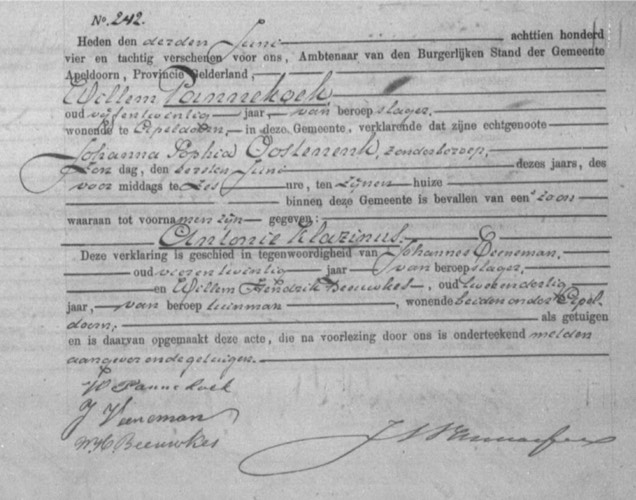 No. 242.
Heden den derden Juni achttien honderd
vier en tachtig verschenen voor ons, Ambtenaar van den Burgerlijken Stand der Gemeente
Apeldoorn, Provincie Gelderland,
Willem Pannekoek
oud vijfentwintig jaar, van beroep slager,
wonende te Apeldoorn, in deze Gemeente, verklarende dat zijne echtgenoote
Johanna Sophia Oostenenk, zonder beroep,
den dag, den eersten Juni dezes jaars, des
voor middags te zes ure, ten zijnen huize
binnen deze Gemeente is bevallen van een zoon
waaraan tot voornamen zijn gegeven:
Antonie Klazinus.
Deze verklaring is geschied in tegenwoordigheid van Johannes Veeneman,
oud vierentwintig jaar van beroep slager,
en Willem Hendrik Beeuwkes, oud tweeendertig
jaar, van beroep tuinman, wonende beiden onder Apel-
doorn, als getuigen
en is daarvan opgemaakt deze acte, die na voorlezing door ons is onderteekend met den
aangever en de getuigen.
W Pannekoek
J Veeneman
W H Beeuwkes